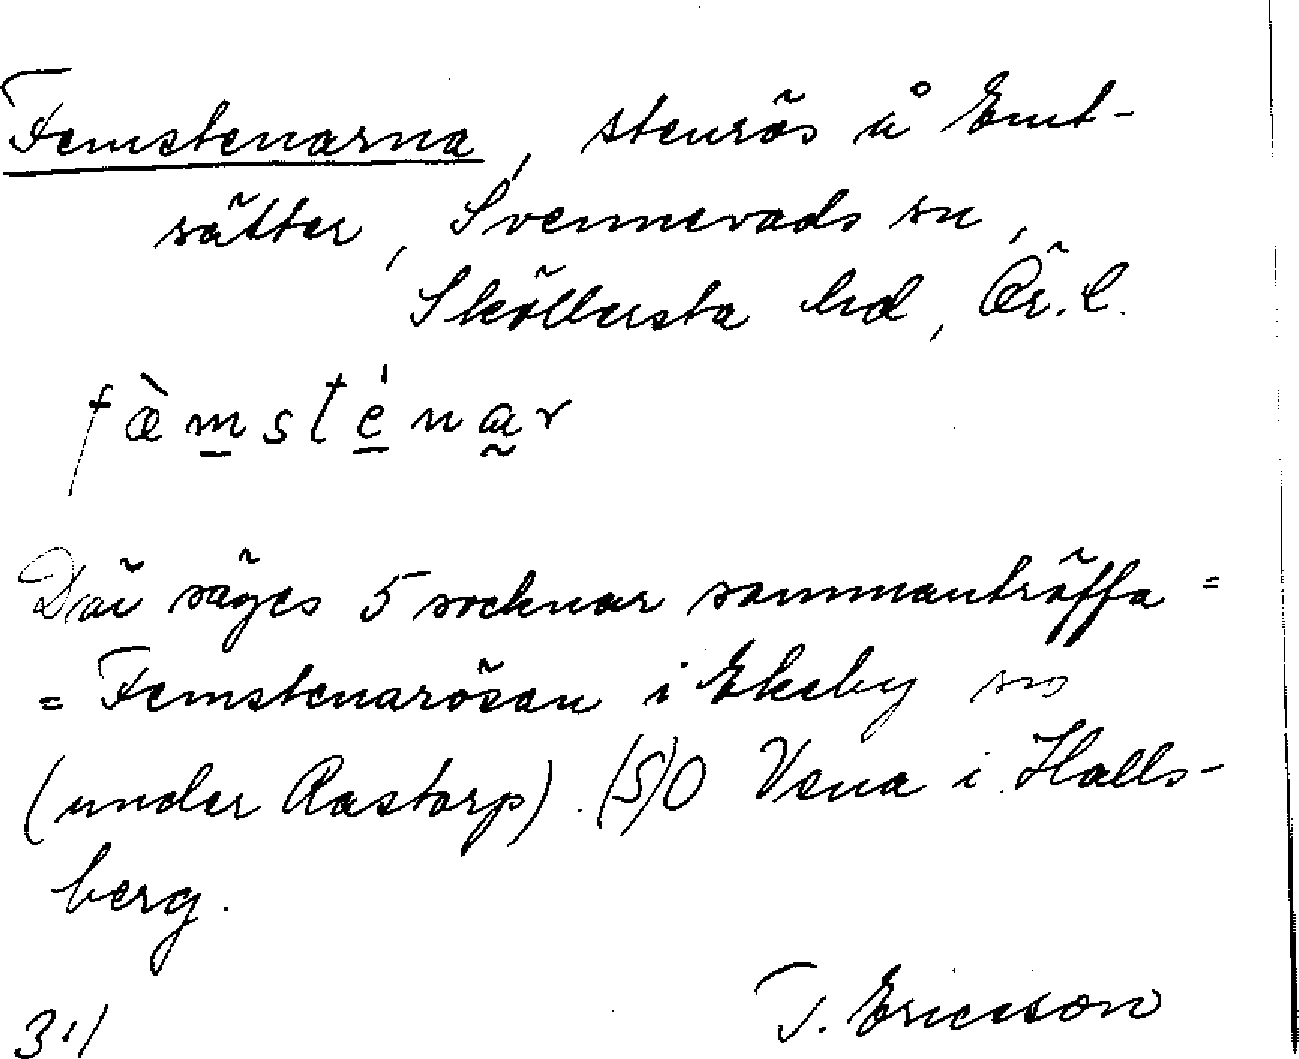 Femstenarna, stenrös å Emt-
sätter, Svennevads sn,
Sköllersta hd, Ör. l.
fæ̀msténar
Där säges 5 socknar sammanträffa =
= Femstenarösen i Ekeby sn
(under Rastorp). (S)O Vena i Halls-
berg.
T. Ericsson